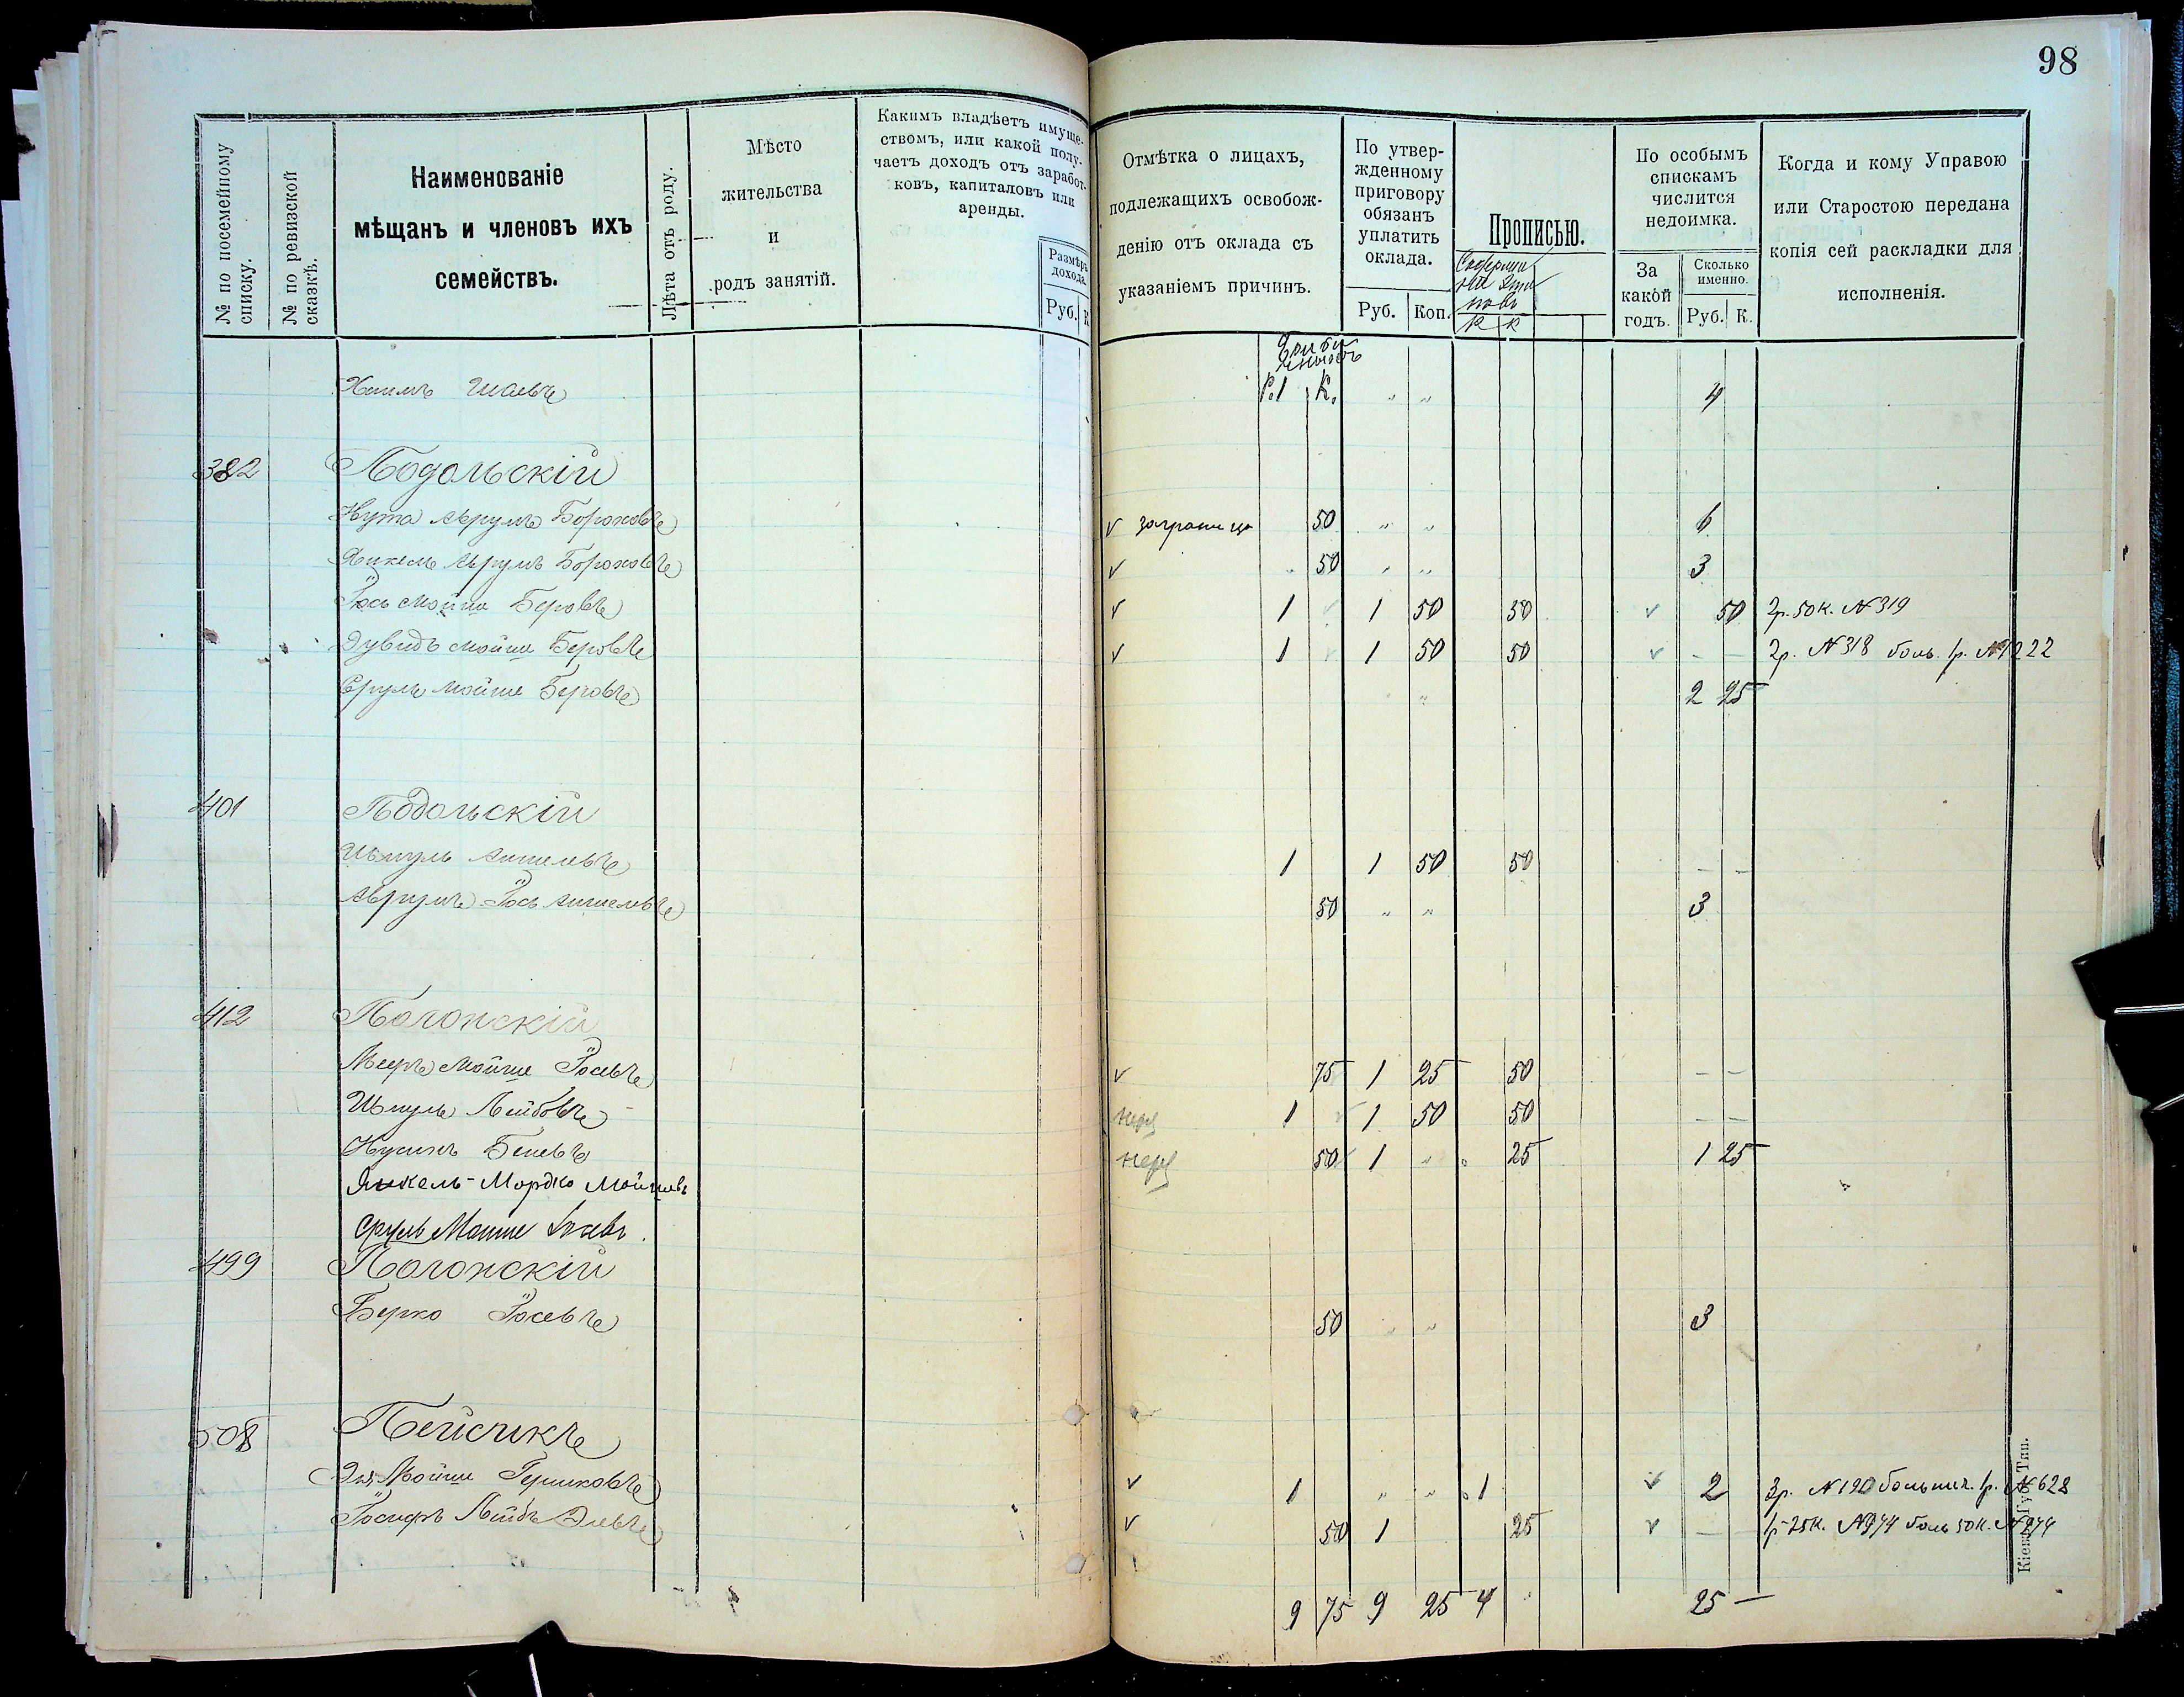 98
№ по посемейному списку.
№ по ревизской сказкѣ.
Наименованіе
мѣщанъ и членовъ ихъ
семействъ.
Лѣта отъ роду.
Мѣсто
жительства
и
родъ занятій.
Какимъ владѣетъ имуще-
ствомъ, или какой полу-
чаетъ доходъ отъ заработ-
ковъ, капиталовъ или
аренды.
Размѣръ
дохода.
Руб. К
Отмѣтка о лицахъ,
подлежащихъ освобож-
денію отъ оклада съ
указаніемъ причинъ.
По утвер-
жденному
приговору
обязанъ
уплатить
оклада.
Руб. Коп.
Прописью.
К К
По особымъ
спискамъ
числится
недоимка.
За
какой
годъ.
Сколько
именно.
Руб. К.
Когда и кому Управою
или Старостою передана
копія сей раскладки для
исполненія.
Хаимъ Шаевъ Р. 1 К. " " 4
382 Подольскій
Нута Аврумъ Бороховъ v заграница 50 " " 6
Янкель Аврумъ Бороховъ v " 50 " " 3
Іось Мойше Беровъ v 1 v 1 50 50 v 50 2р. 50к. №319
Дувидъ Мойше Беровъ v 1 v 1 50 50 v - - 2р. №318 боль. 1р. №1222
Сруль Мойше Беровъ " " 2 25
401 Подольскій
Шмуль Аншелевъ 1 1 50 50 - -
Аврумъ Іось Аншелевъ 50 " " 3
412 Полонскій
Мееръ Мойше Іосевъ v 75 1 25 50 - -
Шмуль Лейбовъ 1 v 1 50 50 - -
Нусинъ Беневъ 50 v 1 " " 25 1 25
Янкель-Мордко Мойшевъ
Сруль
499 Полонскій
Берко Іосевъ 50 " " 3
508 Пейсикъ
Эля Мойше Гершковъ v 1 " " 1 v 2 3р. №190 больнич. 1р. №628
Іосифъ Лейбъ Элевъ v 50 1 25 v - 1р 25к. №974 боль 50к. №274
9 75 9 25 4 " 25 —
Кіевъ, Губ. Тип.